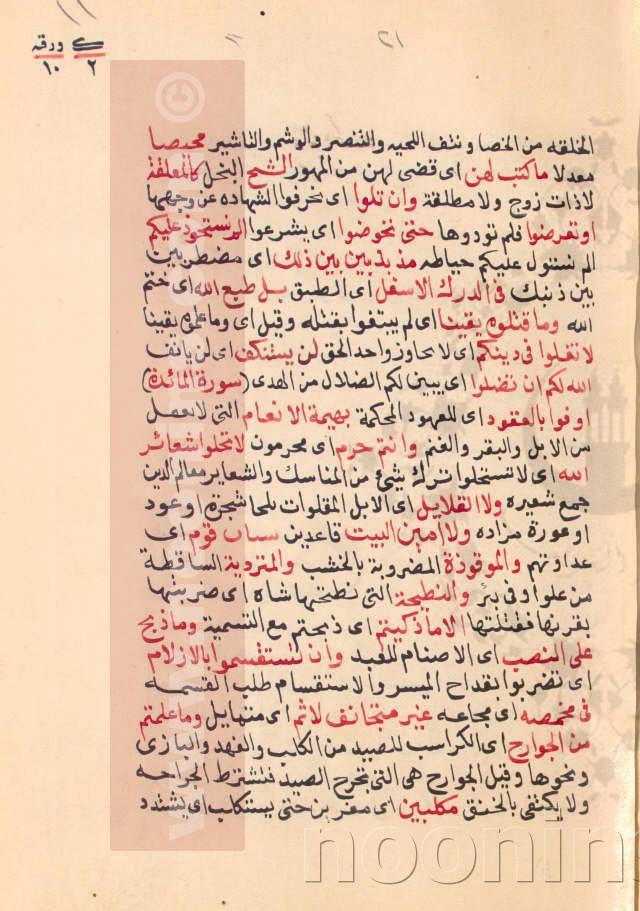 ورقه
٢ ١٠
٢١
الخلقه من الخصا ونتف اللحيه والتنصر والوشم والتاشير محيصا
معدلا ما كتب لهن اى قضى لهن من المهور الشح البخل كالمعلقة
لاذات زوج ولا مطلقة وان تلوا اى تحرفوا الشهاده عن وجهها
او تعرضوا فلم تودوها حتى تخوضوا اى يشرعوا الم نستحوذ عليكم
الم نستول عليكم حياطه مذبذبين بين ذلك اى مضطربين
بين ذينك فى الدرك الاسفل اى الطبق بل طبع الله اى ختم
الله وما قتلوه يقينا اى لم يتيقنوا بقتله وقيل اى وما علموه يقينا
لا تغلوا فى دينكم اى لا تجاوزوا حد الحق لن يستنكف اى لن يانف
الله لكم ان تضلوا اى يبين لكم الضلال من الهدى (سورة المائدة)
اوفوا بالعقود اى للعهود المحكمة بهيمة الانعام التى لا تعقل
من الابل والبقر والغنم وانتم حرم اى محرمون لا تحلوا شعائر
الله اى لا تستحلوا ترك شيئ من المناسك والشعاير معالم الدين
جمع شعيره ولا القلايد اى الابل المقلدات بلحا شجرة او عود
او عورة مزاده ولا امين البيت قاعدين سنان قوم اى
عداوتهم والموقوذة المضروبة بالخشب والمتردية الساقطة
من علو او فى بئر والنطيحة التى نطحتها شاه اى ضربتها
بقرنها فقتلتها الا ما ذكيتم اى ذبحتم مع التسمية وما ذبح
على النصب اى الاصنام للتعبد وان تستقسموا بالازلام
اى تضربوا بقداح الميسر والاستقسام طلب القسمه
فى مخمصه اى مجاعه غير متجانف لاثم اى متمايل وما علمتم
من الجوارح اى الكواسب للصيد من الكلب والفهد والبازى
ونحوها وقيل الجوارح هى التى تجرح الصيد فتشترط الجراحه
ولا يكتفى بالخنق مكلبين اى مغرين حتى يستكلب اى يشتد
noonin